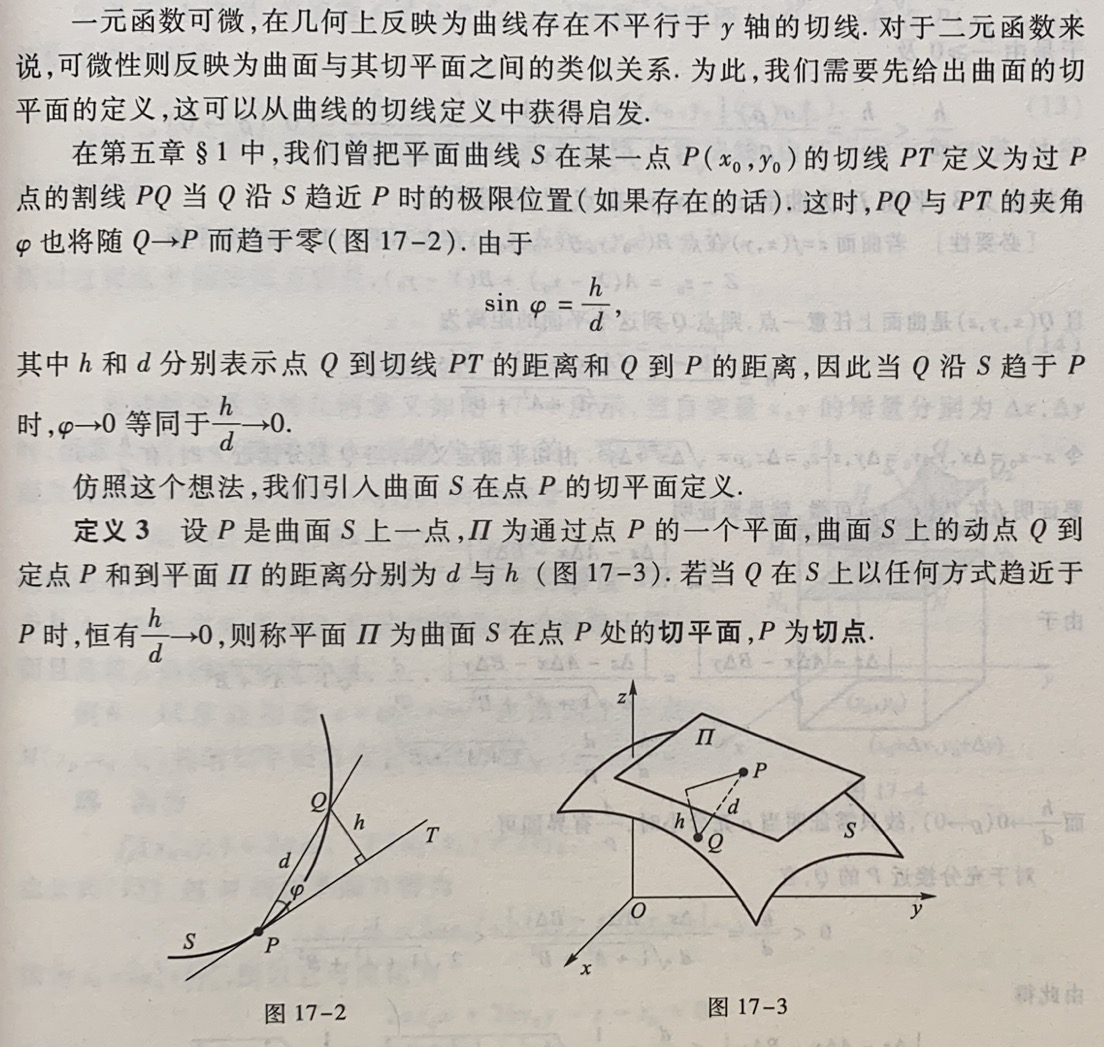 一元函数可微,在几何上反映为曲线存在不平行于 y 轴的切线. 对于二元函数来
说,可微性则反映为曲面与其切平面之间的类似关系. 为此,我们需要先给出曲面的切
平面的定义,这可以从曲线的切线定义中获得启发.
在第五章 §1 中,我们曾把平面曲线 S 在某一点 P(x₀,y₀)的切线 PT 定义为过 P
点的割线 PQ 当 Q 沿 S 趋近 P 时的极限位置(如果存在的话). 这时,PQ 与 PT 的夹角
φ 也将随 Q→P 而趋于零(图 17-2). 由于
sin φ = h/d,
其中 h 和 d 分别表示点 Q 到切线 PT 的距离和 Q 到 P 的距离,因此当 Q 沿 S 趋于 P
时,φ→0 等同于 h/d→0.
仿照这个想法,我们引入曲面 S 在点 P 的切平面定义.
定义 3 设 P 是曲面 S 上一点,Π 为通过点 P 的一个平面,曲面 S 上的动点 Q 到
定点 P 和到平面 Π 的距离分别为 d 与 h (图 17-3). 若当 Q 在 S 上以任何方式趋近于
P 时,恒有 h/d→0,则称平面 Π 为曲面 S 在点 P 处的切平面,P 为切点.
Q
h
T
d
φ
S
P
图 17-2
z
Π
P
d
h
Q
S
O
y
x
图 17-3